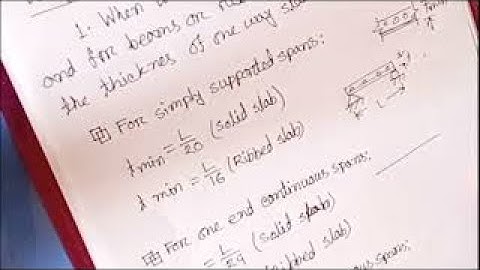 1. When
and for beams or
the thicknes of one way slab
For simply supported spans:
t min = L/20 (Solid slab)
t min = L/16 (Ribbed slab)
For one end continuous spans:
= L/24 (Solid slab)
Ribbed slab)
spans:
L